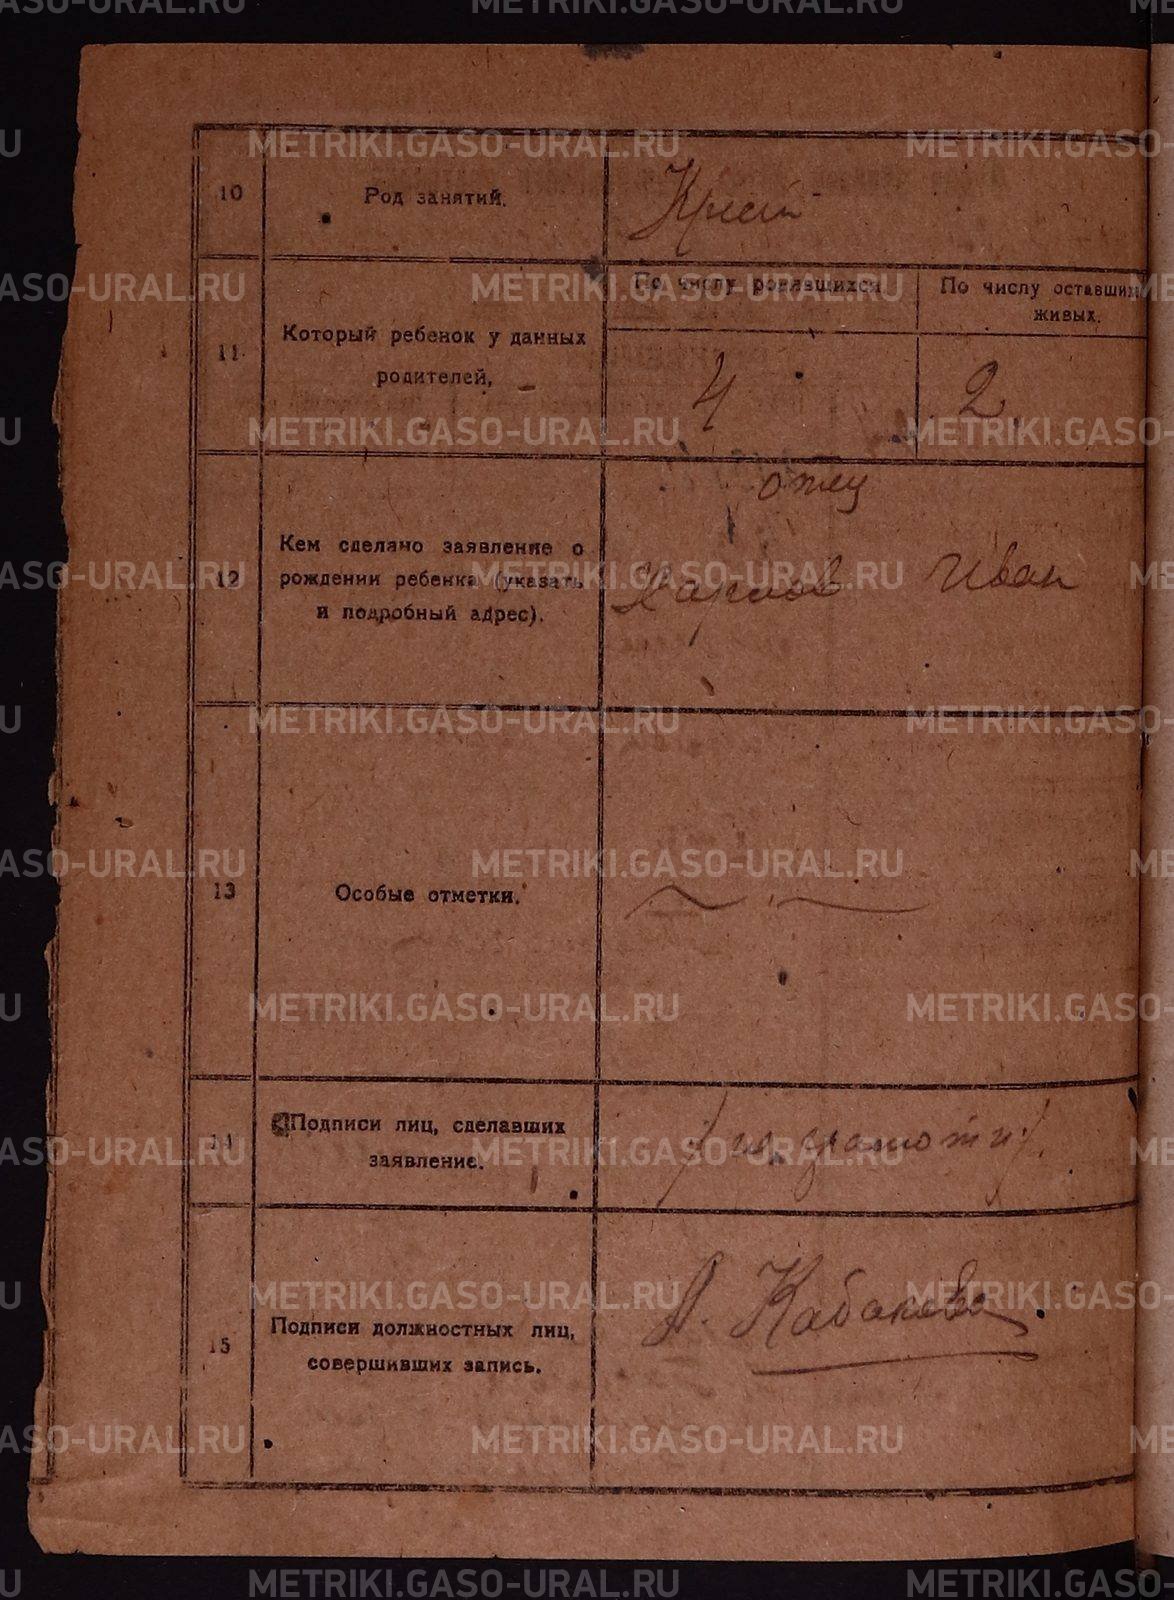 10
Род занятий.
Крест
11
Который ребенок у данных
родителей,
По числу родившихся
По числу оставших
живых.
4
2
12
Кем сделано заявление о
рождении ребенка (указать
и подробный адрес).
отец
Харлов Иван
13
Особые отметки.
14
Подписи лиц, сделавших
заявление.
/неграмотн/
15
Подписи должностных лиц,
совершивших запись.
А. Кабакова
METRIKI.GASO-URAL.RU